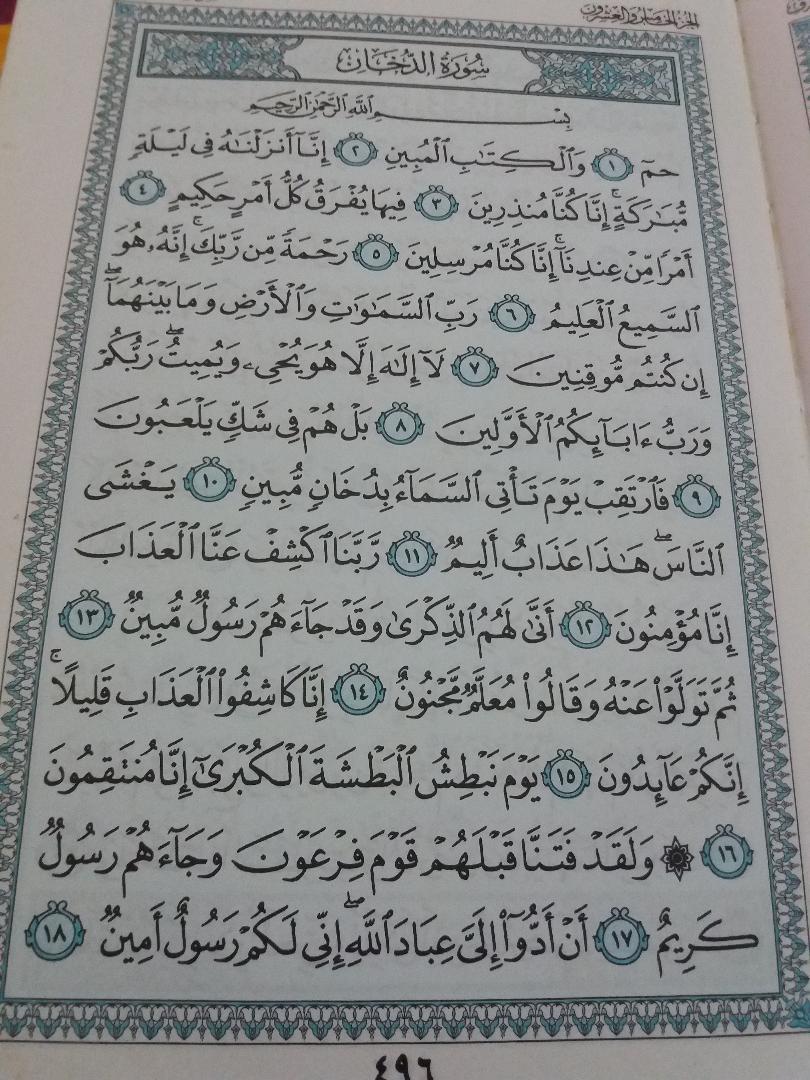 الجزء الخامس والعشرون
سُورَةُ الدُّخَانِ
بِسْمِ اللَّهِ الرَّحْمَٰنِ الرَّحِيمِ
حمٓ ١ وَٱلْكِتَٰبِ ٱلْمُبِينِ ٢ إِنَّآ أَنزَلْنَٰهُ فِى لَيْلَةٍ
مُّبَٰرَكَةٍ ۚ إِنَّا كُنَّا مُنذِرِينَ ٣ فِيهَا يُفْرَقُ كُلُّ أَمْرٍ حَكِيمٍ ٤
أَمْرًا مِّنْ عِندِنَآ ۚ إِنَّا كُنَّا مُرْسِلِينَ ٥ رَحْمَةً مِّن رَّبِّكَ ۚ إِنَّهُۥ هُوَ
ٱلسَّمِيعُ ٱلْعَلِيمُ ٦ رَبِّ ٱلسَّمَٰوَٰتِ وَٱلْأَرْضِ وَمَا بَيْنَهُمَآ ۖ
إِن كُنتُم مُّوقِنِينَ ٧ لَآ إِلَٰهَ إِلَّا هُوَ يُحْىِۦ وَيُمِيتُ ۖ رَبُّكُمْ
وَرَبُّ ءَابَآئِكُمُ ٱلْأَوَّلِينَ ٨ بَلْ هُمْ فِى شَكٍّ يَلْعَبُونَ
٩ فَٱرْتَقِبْ يَوْمَ تَأْتِى ٱلسَّمَآءُ بِدُخَانٍ مُّبِينٍ ١٠ يَغْشَى
ٱلنَّاسَ ۖ هَٰذَا عَذَابٌ أَلِيمٌ ١١ رَّبَّنَا ٱكْشِفْ عَنَّا ٱلْعَذَابَ
إِنَّا مُؤْمِنُونَ ١٢ أَنَّىٰ لَهُمُ ٱلذِّكْرَىٰ وَقَدْ جَآءَهُمْ رَسُولٌ مُّبِينٌ ١٣
ثُمَّ تَوَلَّوْا۟ عَنْهُ وَقَالُوا۟ مُعَلَّمٌ مَّجْنُونٌ ١٤ إِنَّا كَاشِفُوا۟ ٱلْعَذَابِ قَلِيلًا ۚ
إِنَّكُمْ عَآئِدُونَ ١٥ يَوْمَ نَبْطِشُ ٱلْبَطْشَةَ ٱلْكُبْرَىٰٓ إِنَّا مُنتَقِمُونَ
١٦ ۞ وَلَقَدْ فَتَنَّا قَبْلَهُمْ قَوْمَ فِرْعَوْنَ وَجَآءَهُمْ رَسُولٌ
كَرِيمٌ ١٧ أَنْ أَدُّوٓا۟ إِلَىَّ عِبَادَ ٱللَّهِ ۖ إِنِّى لَكُمْ رَسُولٌ أَمِينٌ ١٨
٤٩٦